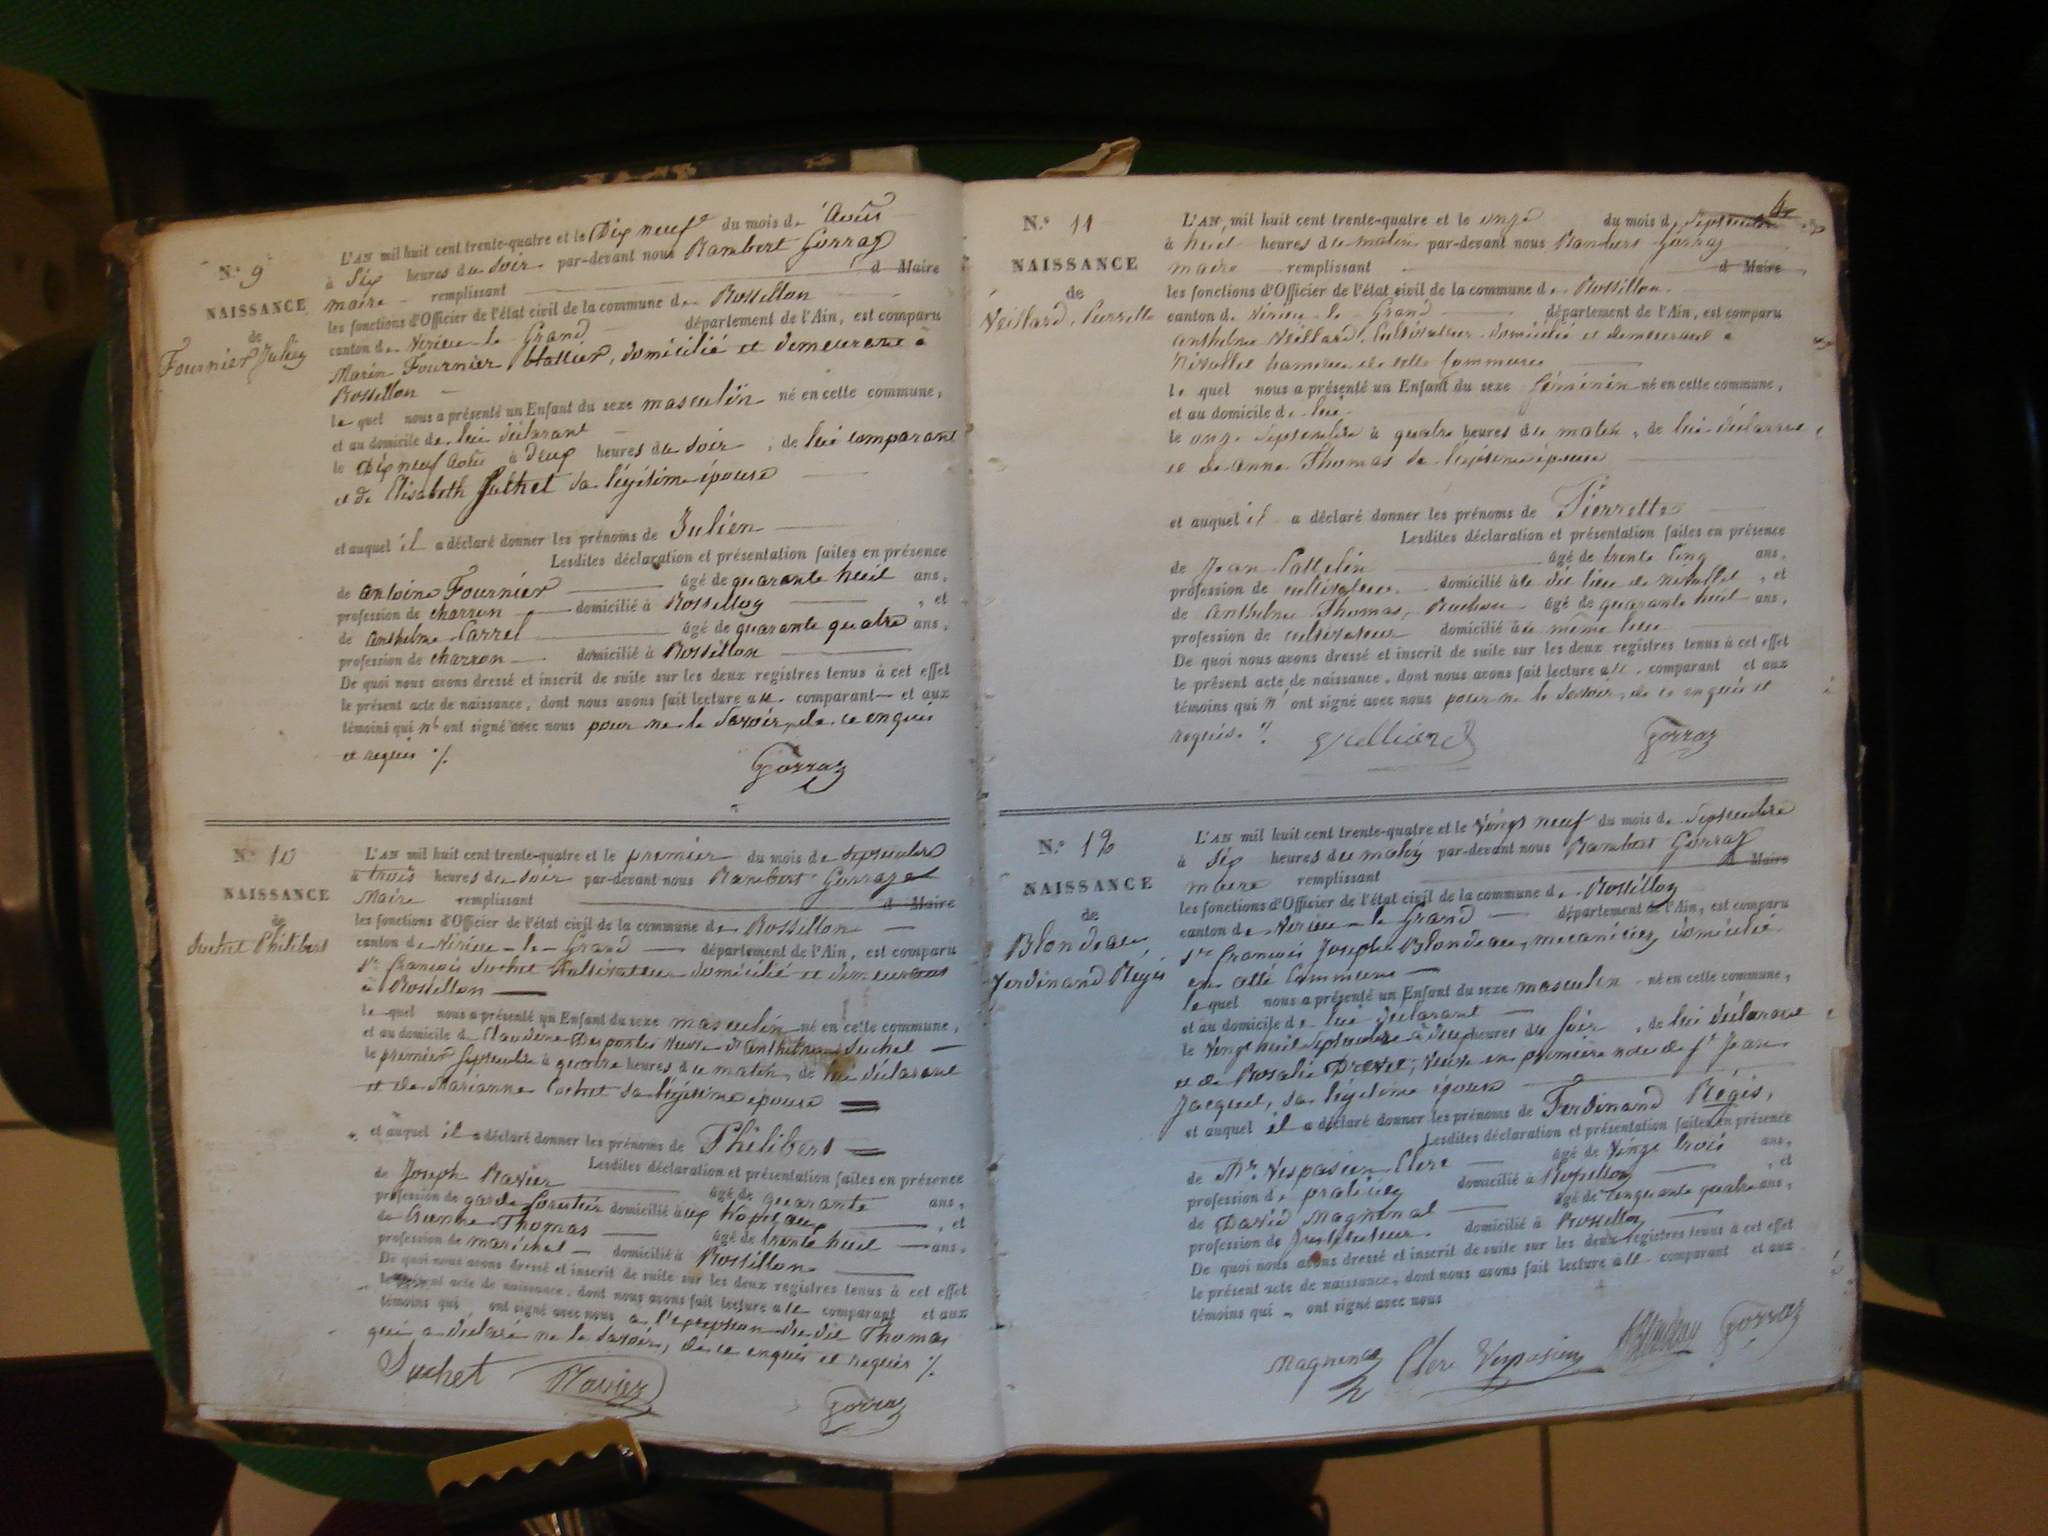 N.° 9
NAISSANCE
de
Fournier Julien
L'AN mil huit cent trente-quatre et le Dix neuf du mois de Août
à Six heures du soir par-devant nous Rambert Gorraz
maire remplissant d Maire
les fonctions d'Officier de l'état civil de la commune de Rossillon
canton de Virieu-le-Grand département de l'Ain, est comparu
Marin Fournier, domicilié et demeurant à
Rossillon
lequel nous a présenté un Enfant du sexe masculin né en cette commune,
et au domicile de lui déclarant
le Dix neuf Août à deux heures du soir, de lui comparant
et de Elisabeth Juthet sa légitime épouse
et auquel il a déclaré donner les prénoms de Julien
Lesdites déclaration et présentation faites en présence
de antoine Fournier âgé de quarante huit ans,
profession de charron domicilié à Rossillon, et
de anthelme Carrel âgé de quarante quatre ans,
profession de charron domicilié à Rossillon
De quoi nous avons dressé et inscrit de suite sur les deux registres tenus à cet effet
le présent acte de naissance, dont nous avons fait lecture au comparant et aux
témoins qui n' ont signé avec nous pour ne le savoir, de ce enquis
et requis ./.
Gorraz
N.° 10
NAISSANCE
de
Suchet Philibert
L'AN mil huit cent trente-quatre et le premier du mois de septembre
à trois heures du soir par-devant nous Rambert Gorraz
Maire remplissant d Maire
les fonctions d'Officier de l'état civil de la commune de Rossillon
canton de Virieu-le-Grand département de l'Ain, est comparu
Sr françois Suchet Cultivateur domicilié et demeurant
à Rossillon
lequel nous a présenté un Enfant du sexe masculin né en cette commune,
et au domicile de Claudine Desportes veuve d'anthelme Suchet
le premier septembre à quatre heures du matin, de lui déclarant
et de Marianne Cochet sa légitime épouse
et auquel il a déclaré donner les prénoms de Philibert
Lesdites déclaration et présentation faites en présence
de Joseph Ravier âgé de quarante ans,
profession de garde forestier domicilié aux hopitaux, et
de Etienne Thomas âgé de trente huit ans,
profession de maréchal domicilié à Rossillon
De quoi nous avons dressé et inscrit de suite sur les deux registres tenus à cet effet
le présent acte de naissance, dont nous avons fait lecture au comparant et aux
témoins qui ont signé avec nous a l'exception du dit Thomas
qui a déclaré ne le savoir, de ce enquis et requis ./.
Suchet Ravier
Gorraz
N.° 11
NAISSANCE
de
Veillard Pierrette
L'AN, mil huit cent trente-quatre et le onze du mois de septembre
à huit heures du matin par-devant nous Rambert Gorraz
maire remplissant d Maire
les fonctions d'Officier de l'état civil de la commune de Rossillon
canton de Virieu-le-Grand département de l'Ain, est comparu
anthelme Veillard, Cultivateur domicilié et demeurant à
hameau de cette Commune
lequel nous a présenté un Enfant du sexe féminin né en cette commune,
et au domicile de lui
le onze septembre à quatre heures du matin, de lui déclarant
et de anne Thomas sa légitime épouse
et auquel il a déclaré donner les prénoms de Pierrette
Lesdites déclaration et présentation faites en présence
de Jean âgé de trente cinq ans,
profession de cultivateur domicilié à le dit lieu de, et
de anthelme Thomas, âgé de quarante huit ans,
profession de cultivateur domicilié à le même lieu
De quoi nous avons dressé et inscrit de suite sur les deux registres tenus à cet effet
le présent acte de naissance, dont nous avons fait lecture au comparant et aux
témoins qui n' ont signé avec nous pour ne le savoir, de ce enquis et
requis ./.
Gorraz
N.° 12
NAISSANCE
de
Blondeau
Ferdinand Régis
L'AN mil huit cent trente-quatre et le vingt neuf du mois de septembre
à Six heures du matin par-devant nous Rambert Gorraz
maire remplissant d Maire
les fonctions d'Officier de l'état civil de la commune de Rossillon
canton de Virieu-le-Grand département de l'Ain, est comparu
Sr françois Joseph Blondeau, mecanicien, domicilié
en cette Commune
lequel nous a présenté un Enfant du sexe masculin né en cette commune,
et au domicile de lui déclarant
le vingt huit septembre à deux heures du soir, de lui déclarant
et de Rosalie Drevet, veuve en première noce de Sr Jean
Jacquet, sa légitime épouse
et auquel il a déclaré donner les prénoms de Ferdinand Régis,
Lesdites déclaration et présentation faites en présence
de Mr. Vespasien Clerc âgé de vingt trois ans,
profession de praticien domicilié à Rossillon, et
de David Magninat âgé de cinquante quatre ans,
profession de domicilié à Rossillon
De quoi nous avons dressé et inscrit de suite sur les deux registres tenus à cet effet
le présent acte de naissance, dont nous avons fait lecture au comparant et aux
témoins qui ont signé avec nous
Clerc Vespasien Blondeau Gorraz